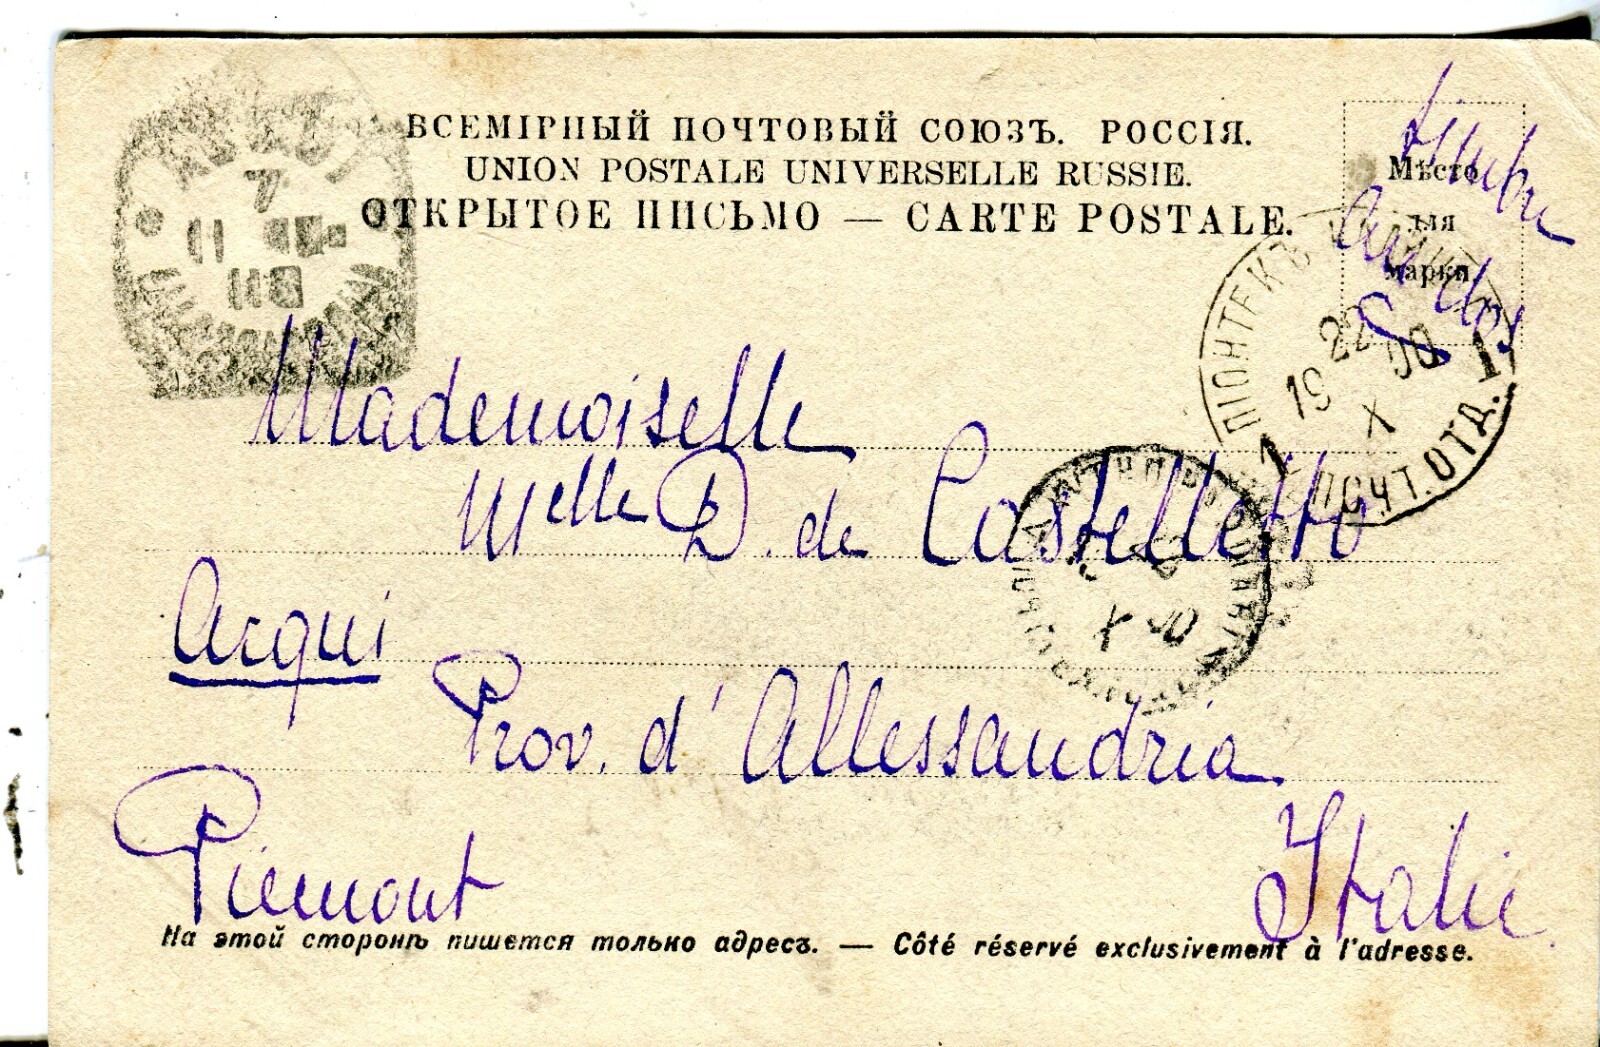 ВСЕМІРНЫЙ ПОЧТОВЫЙ СОЮЗЪ. РОССІЯ.
UNION POSTALE UNIVERSELLE RUSSIE.
ОТКРЫТОЕ ПИСЬМО — CARTE POSTALE.
Мѣсто
для
марки
Timbre
7
11
118
ПІОНТЕКЪ
22
19 00
X
1 ПОЧТ. ОТД. 1
Mademoiselle
Melle D. de Castelletto
X 00
Acqui
Prov. d'Allessandria
Piemont
Italie
На этой сторонѣ пишется только адресъ. — Côté réservé exclusivement à l'adresse.